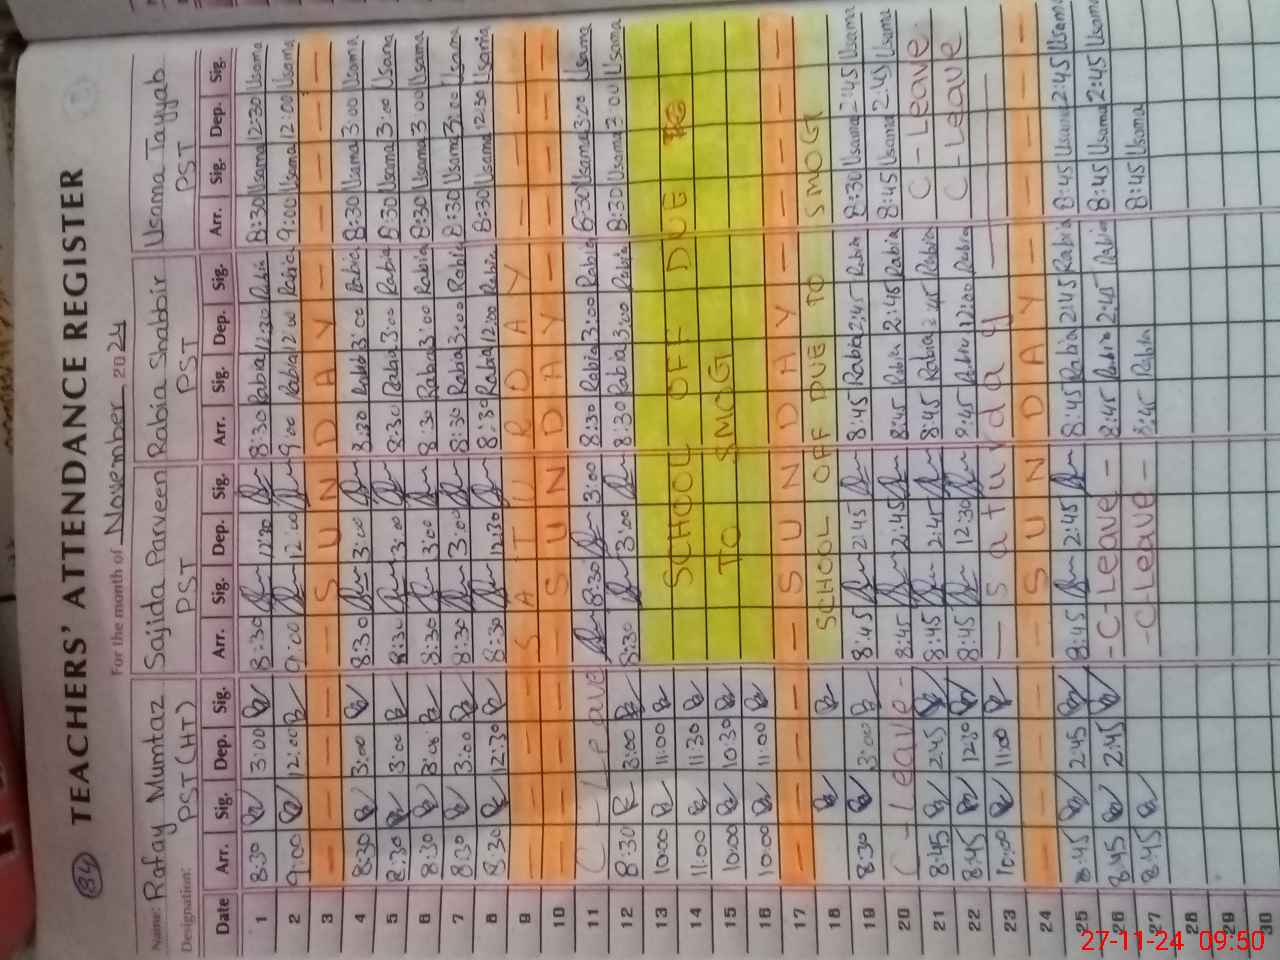 84 TEACHERS' ATTENDANCE REGISTER
For the month of November 2024
Name: Rafay Mumtaz Sajida Parveen Rabia Shabbir Usama Tayyab
Designation: PST (HT) PST PST PST
Date Arr. Sig. Dep. Sig. Arr. Sig. Dep. Sig. Arr. Sig. Dep. Sig. Arr. Sig. Dep. Sig.
1 8:30 3:00 8:30 12:30 8:30 Rabia 12:30 Rabia 8:30 Usama 12:30 Usama
2 9:00 12:00 9:00 12:00 9:00 Rabia 12:00 Rabia 9:00 Usama 12:00 Usama
3 SUNDAY
4 8:30 3:00 8:30 3:00 8:30 Rabia 3:00 Rabia 8:30 Usama 3:00 Usama
5 8:30 3:00 8:30 3:00 8:30 Rabia 3:00 Rabia 8:30 Usama 3:00 Usama
6 8:30 3:00 8:30 3:00 8:30 Rabia 3:00 Rabia 8:30 Usama 3:00 Usama
7 8:30 3:00 8:30 3:00 8:30 Rabia 3:00 Rabia 8:30 Usama 3:00 Usama
8 8:30 12:30 8:30 12:30 8:30 Rabia 12:00 Rabia 8:30 Usama 12:30 Usama
9 SATURDAY
10 SUNDAY
11 C - Leave 8:30 3:00 8:30 Rabia 3:00 Rabia 8:30 Usama 3:00 Usama
12 8:30 3:00 8:30 3:00 8:30 Rabia 3:00 Rabia 8:30 Usama 3:00 Usama
13 10:00 11:00 SCHOOL OFF DUE
14 11:00 11:30
15 10:00 10:30 TO SMOG
16 10:00 11:00
17 SUNDAY
18 SCHOOL OFF DUE TO SMOG
19 8:30 3:00 8:45 2:45 8:45 Rabia 2:45 Rabia 8:30 Usama 2:45 Usama
20 C - Leave - 8:45 2:45 8:45 Rabia 2:45 Rabia 8:45 Usama 2:45 Usama
21 8:45 2:45 8:45 2:45 8:45 Rabia 2:45 Rabia C - Leave
22 8:45 8:45 12:30 Rabia 12:00 Rabia C - Leave
23 10:00 11:00 Saturday
24 SUNDAY
25 8:45 2:45 8:45 2:45 8:45 Rabia 2:45 Rabia 8:45 Usama 2:45 Usama
26 8:45 2:45 - C - Leave - 8:45 Rabia 2:45 Rabia 8:45 Usama 2:45 Usama
27 8:45 - C - Leave - 8:45 Rabia 8:45 Usama
28
29
30
27-11-24 09:50